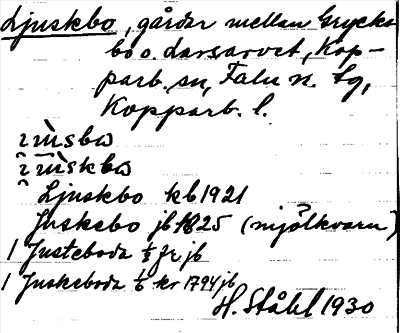 Ljuskbo, gårdar mellan Grycks-
bo o. Larsarvet, Kop-
parb. sn, Falu n. tg,
Kopparb. l.
Ljuskbo kb 1921
Juskebo jb 1825 (mjölkvarn)
1 Justeboda 1/3 fr jb
1 Juskeboda 1/6 kr 1794 jb
H. Ståhl 1930